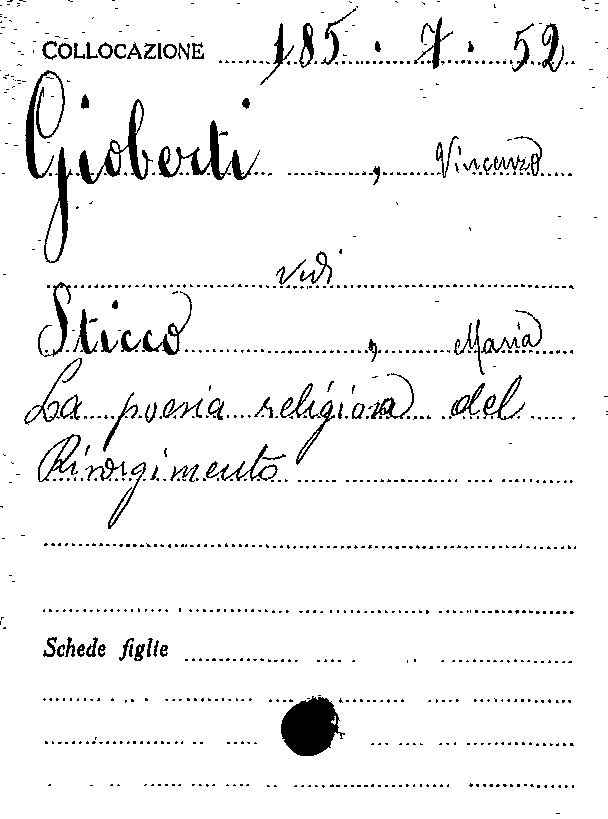 COLLOCAZIONE 185.7.52
Gioberti, Vincenzo
vidi
Sticco, Maria
La poesia religiosa del
Risorgimento
Schede figlie